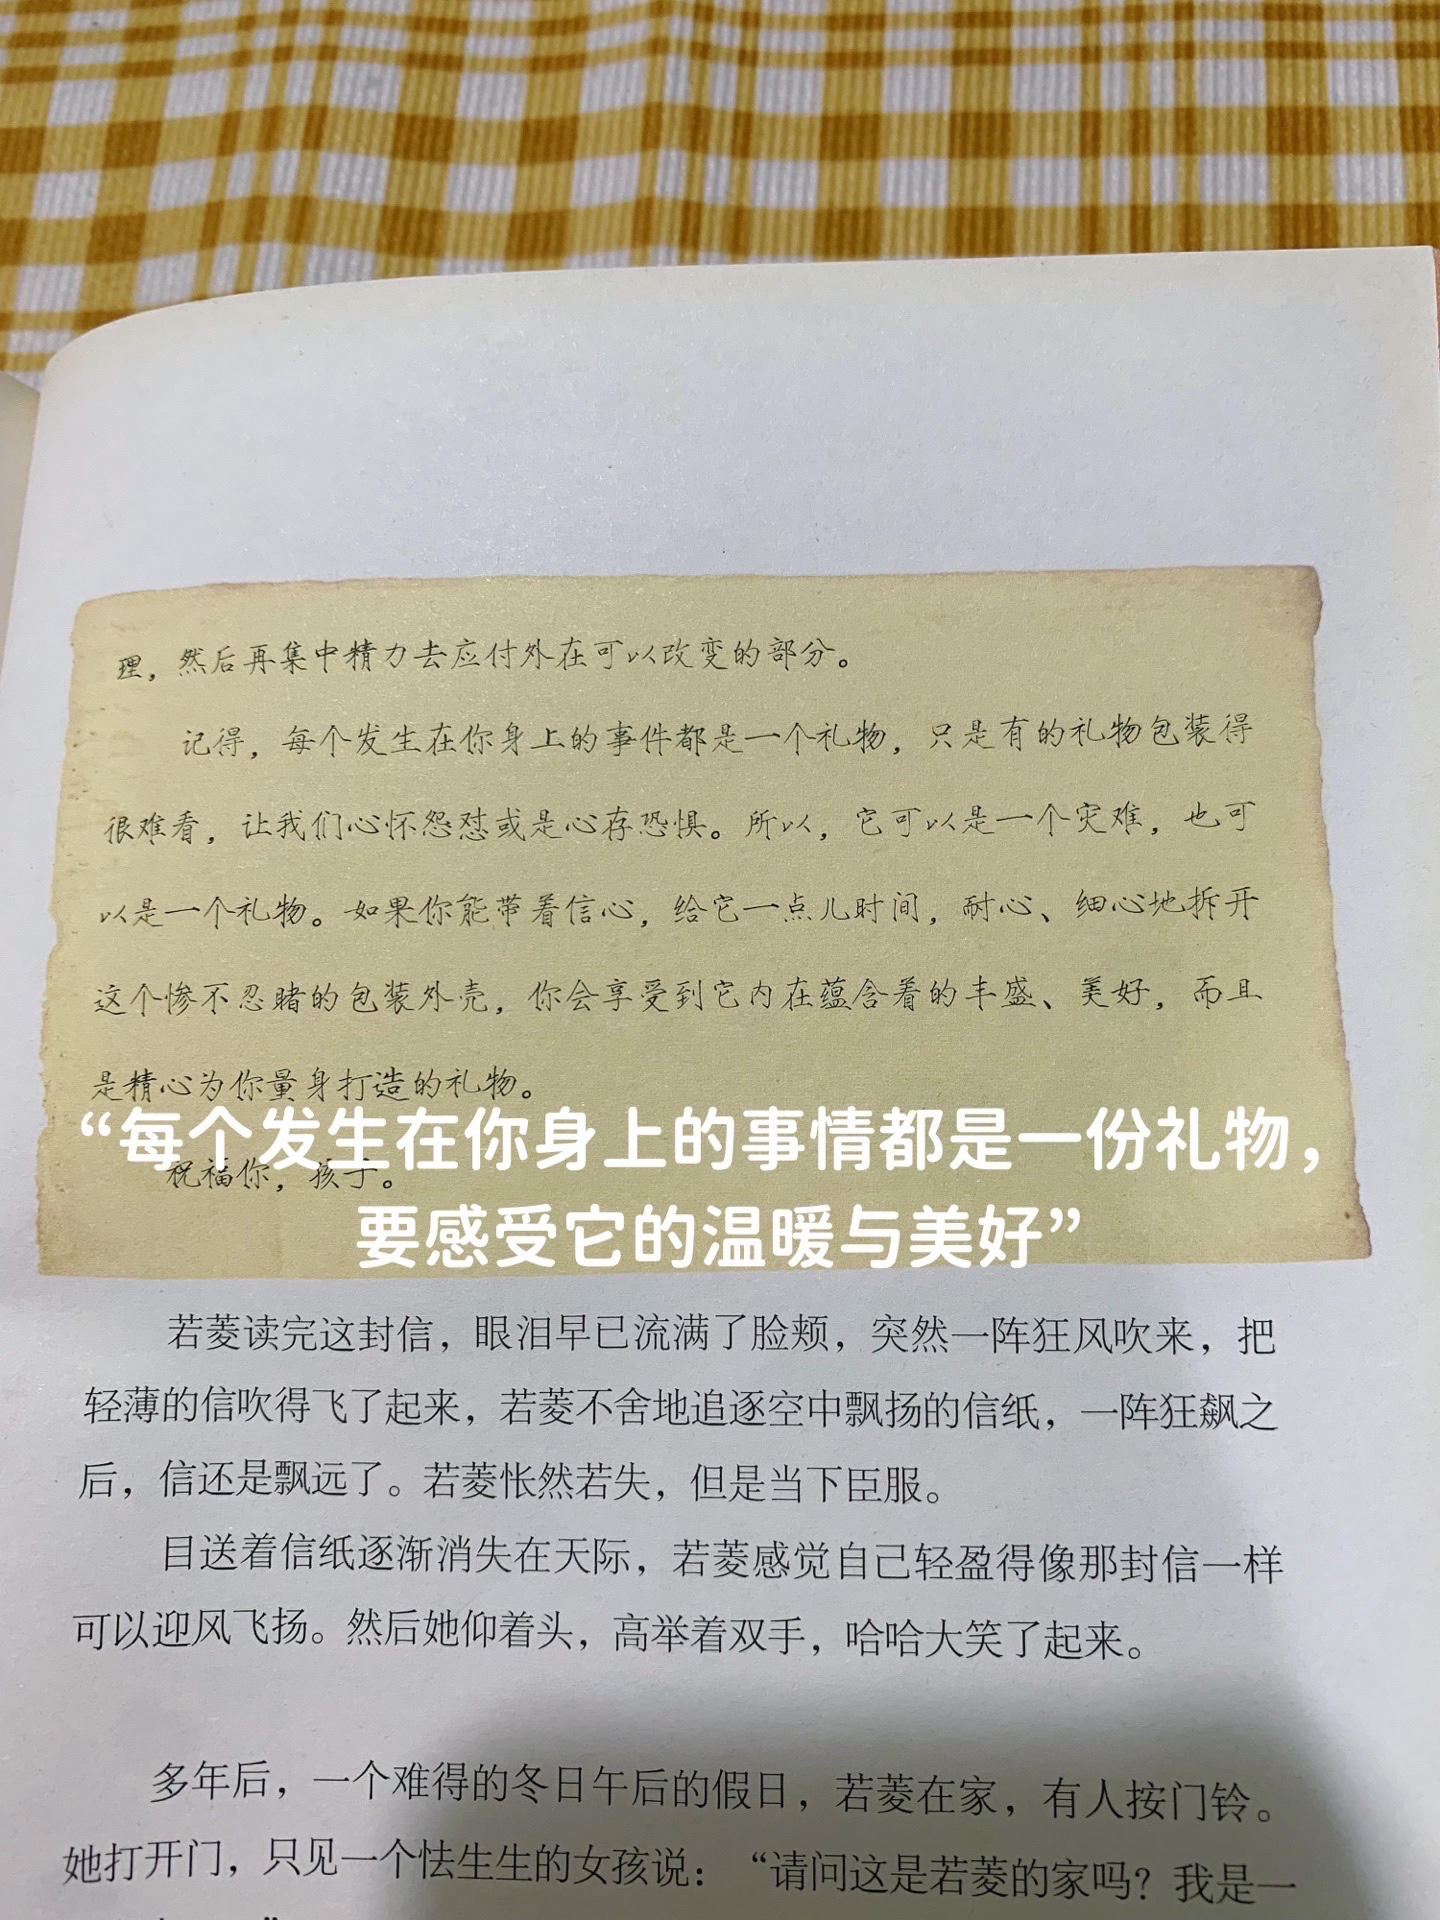 理，然后再集中精力去应付外在可以改变的部分。
记得，每个发生在你身上的事件都是一个礼物，只是有的礼物包装得
很难看，让我们心怀怨怼或是心存恐惧。所以，它可以是一个灾难，也可
以是一个礼物。如果你能带着信心，给它一点儿时间，耐心、细心地拆开
这个惨不忍睹的包装外壳，你会享受到它内在蕴含着的丰盛、美好，而且
是精心为你量身打造的礼物。
“每个发生在你身上的事情都是一份礼物，
祝福你，孩子。
要感受它的温暖与美好”
若菱读完这封信，眼泪早已流满了脸颊，突然一阵狂风吹来，把
轻薄的信吹得飞了起来，若菱不舍地追逐空中飘扬的信纸，一阵狂飙之
后，信还是飘远了。若菱怅然若失，但是当下臣服。
目送着信纸逐渐消失在天际，若菱感觉自己轻盈得像那封信一样
可以迎风飞扬。然后她仰着头，高举着双手，哈哈大笑了起来。
多年后，一个难得的冬日午后的假日，若菱在家，有人按门铃。
她打开门，只见一个怯生生的女孩说：“请问这是若菱的家吗？我是一